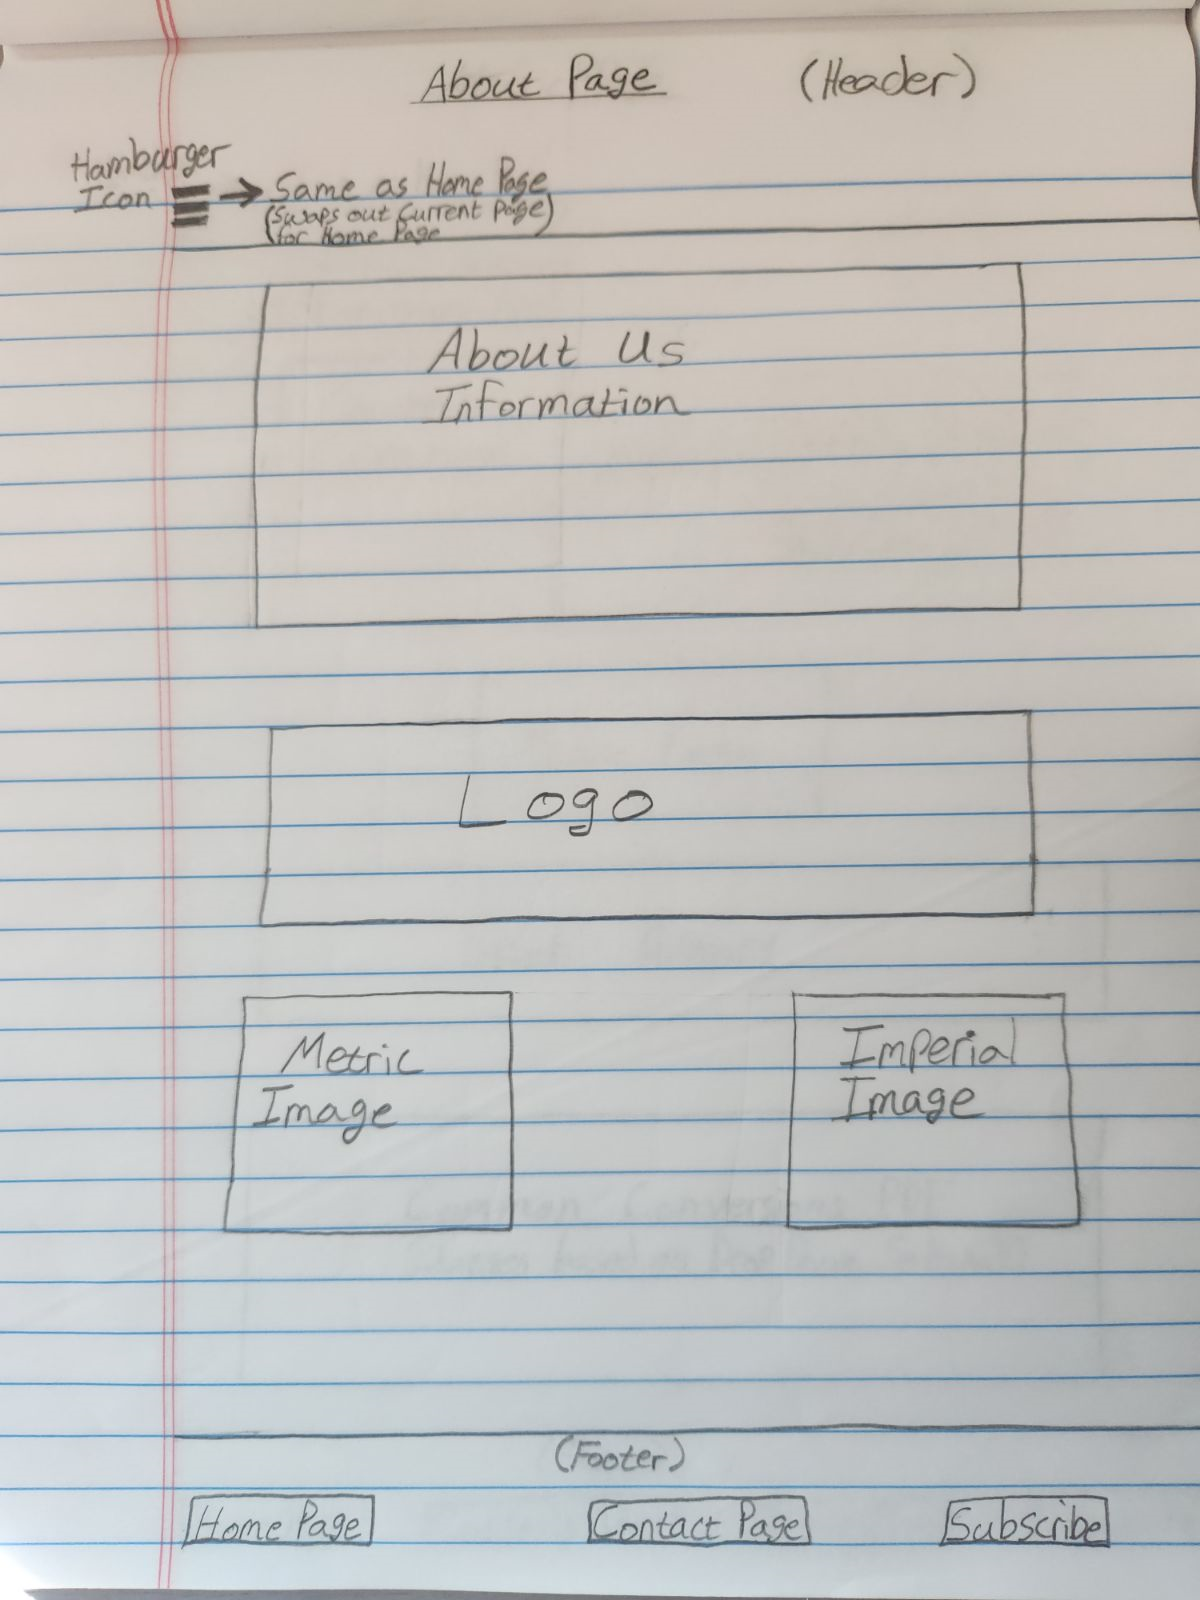 About Page (Header)
Hamburger
Icon → Same as Home Page
(Swaps out Current Page)
(for Home Page
About Us
Information
Logo
Metric
Image
Imperial
Image
(Footer)
Home Page Contact Page Subscribe
Common Conversions